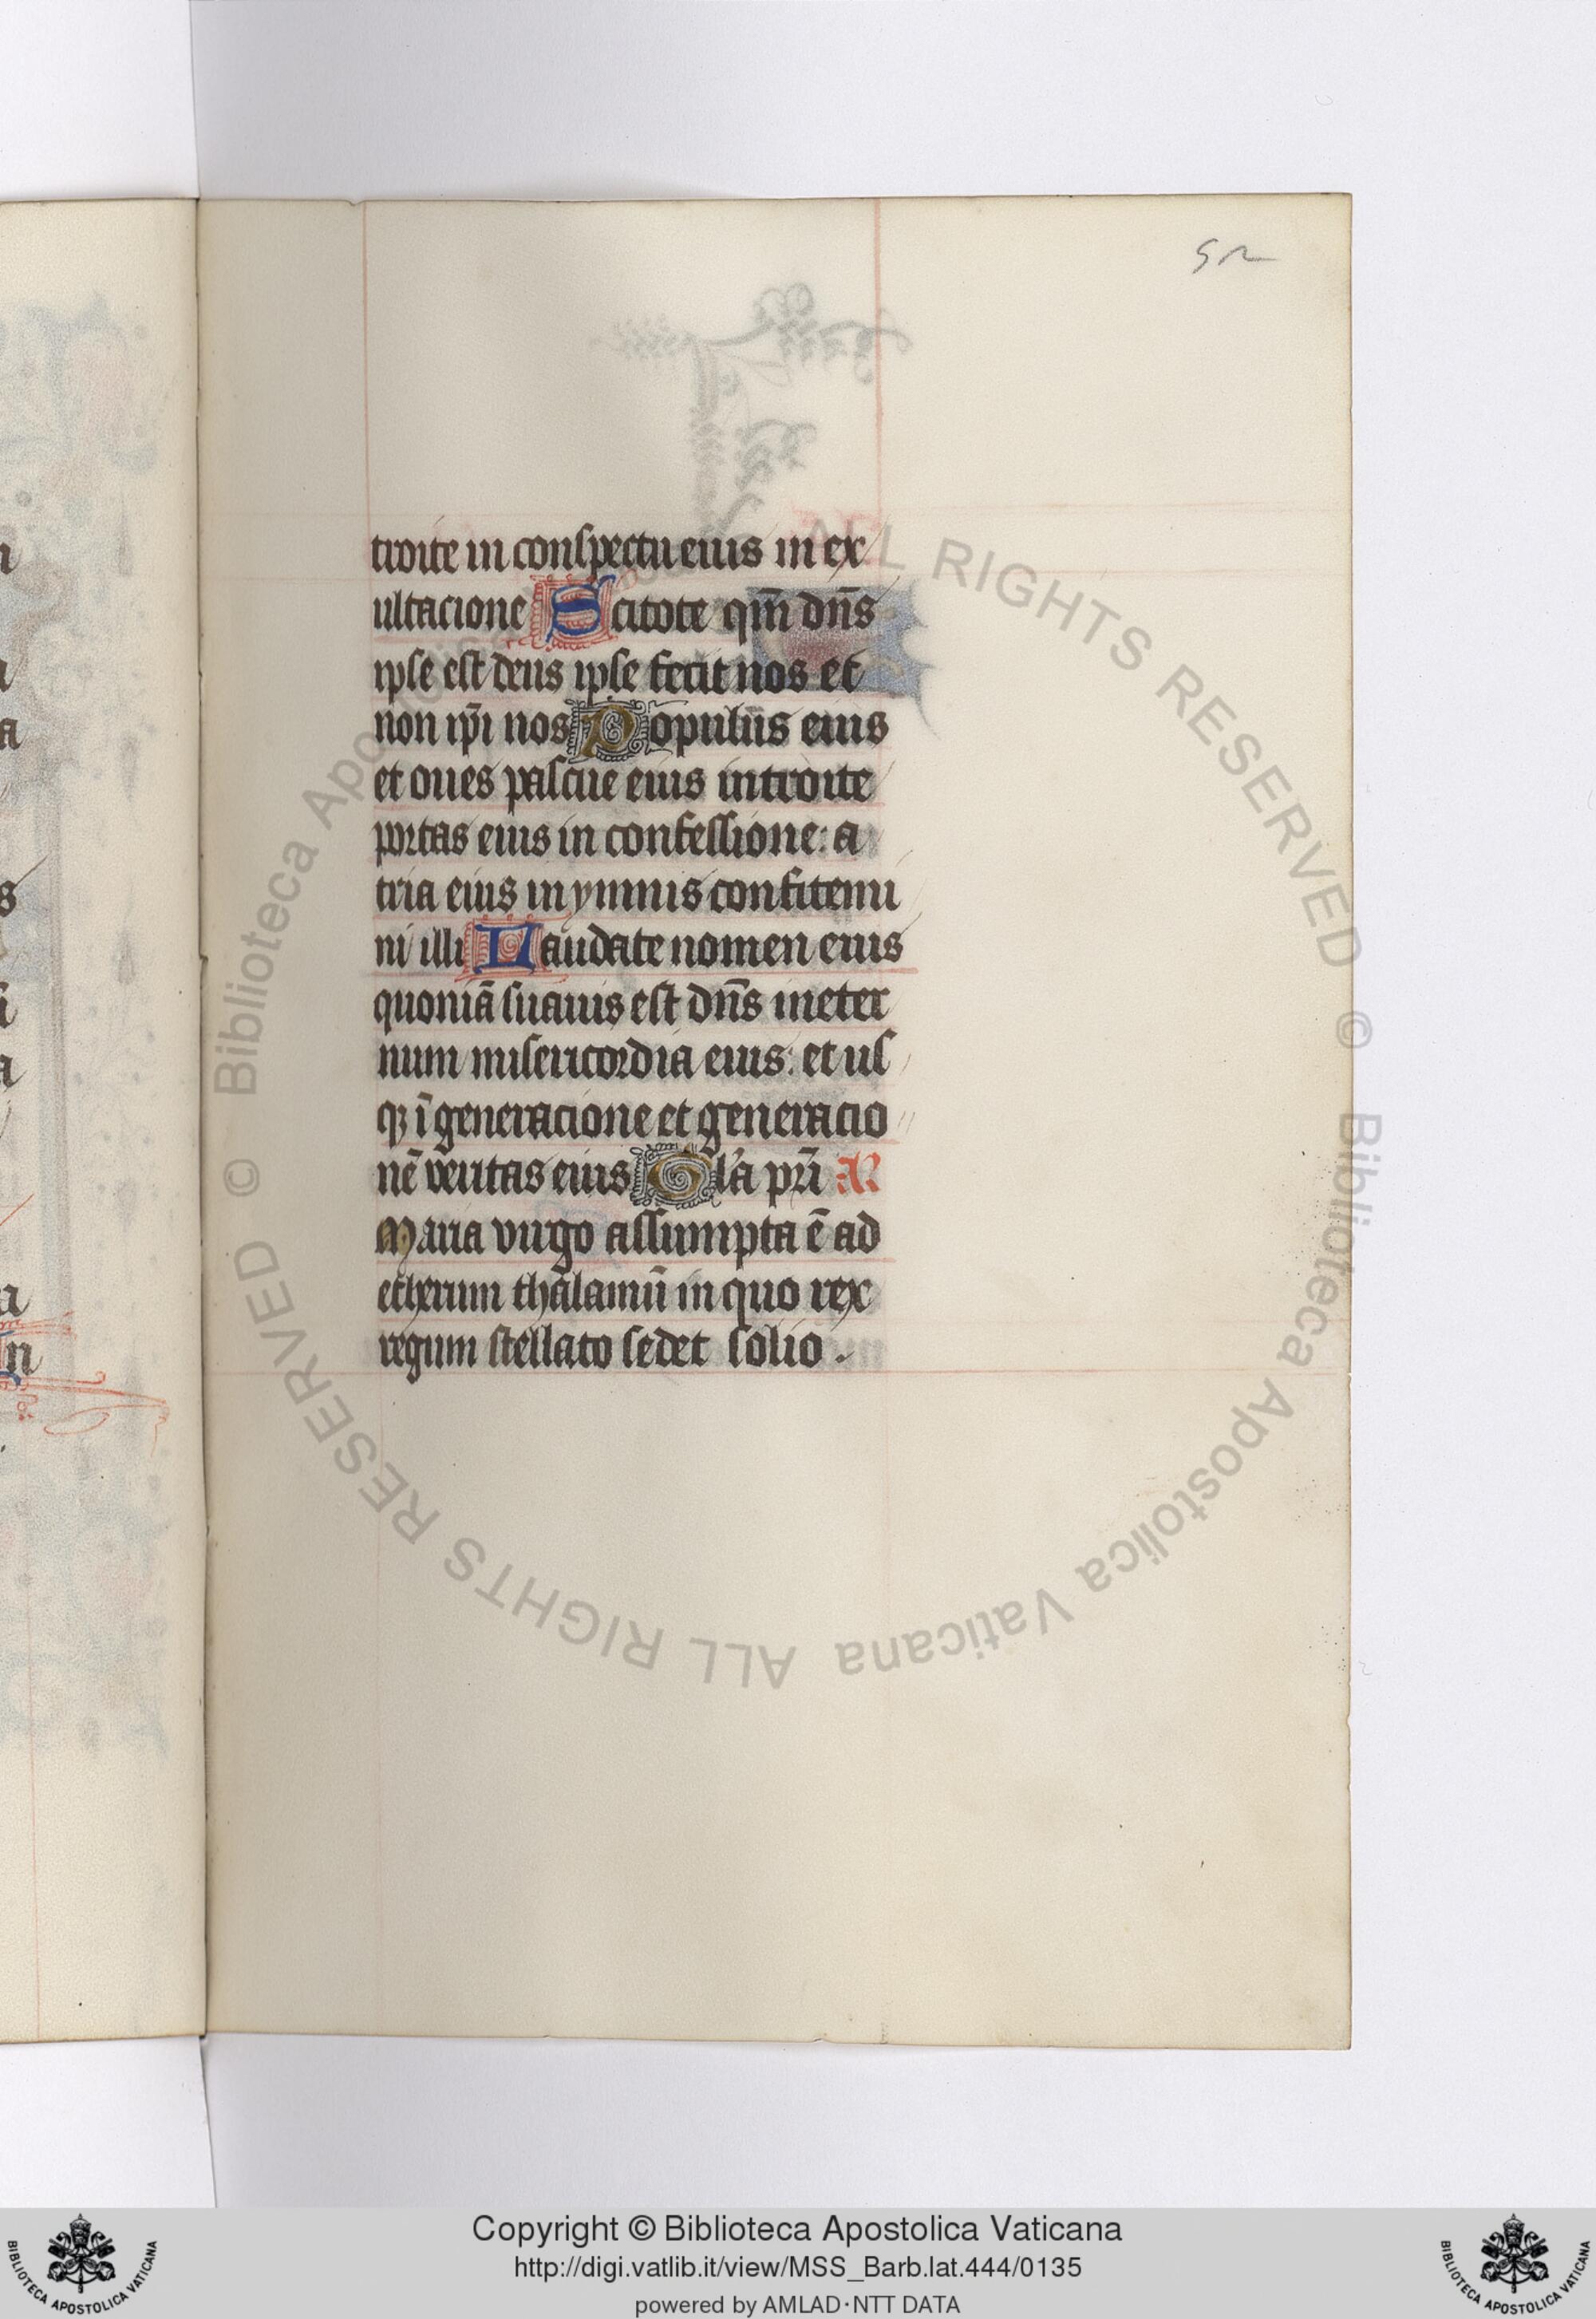 52
troite in conspectu eius in ex
ultacione Scitote qm̄ dn̄s
ipse est deus ipse fecit nos et
non ip̄i nos Populus eius
et oues pascue eius introite
portas eius in confessione: a
tria eius in ymnis confitemi
ni illi Laudate nomen eius
quoniā suauis est dn̄s in eter
num misericordia eius: et us
qꝫ ī generacione et generacio
nē veritas eius Gl'a pr̄i A
Maria virgo assumpta ē ad
etherum thalamū in quo rex
regum stellato sedet solio .
Copyright © Biblioteca Apostolica Vaticana
http://digi.vatlib.it/view/MSS_Barb.lat.444/0135
powered by AMLAD·NTT DATA
BIBLIOTECA APOSTOLICA VATICANA
BIBLIOTECA APOSTOLICA VATICANA
© Biblioteca Apostolica Vaticana ALL RIGHTS RESERVED © Biblioteca Apostolica Vaticana ALL RIGHTS RESERVED